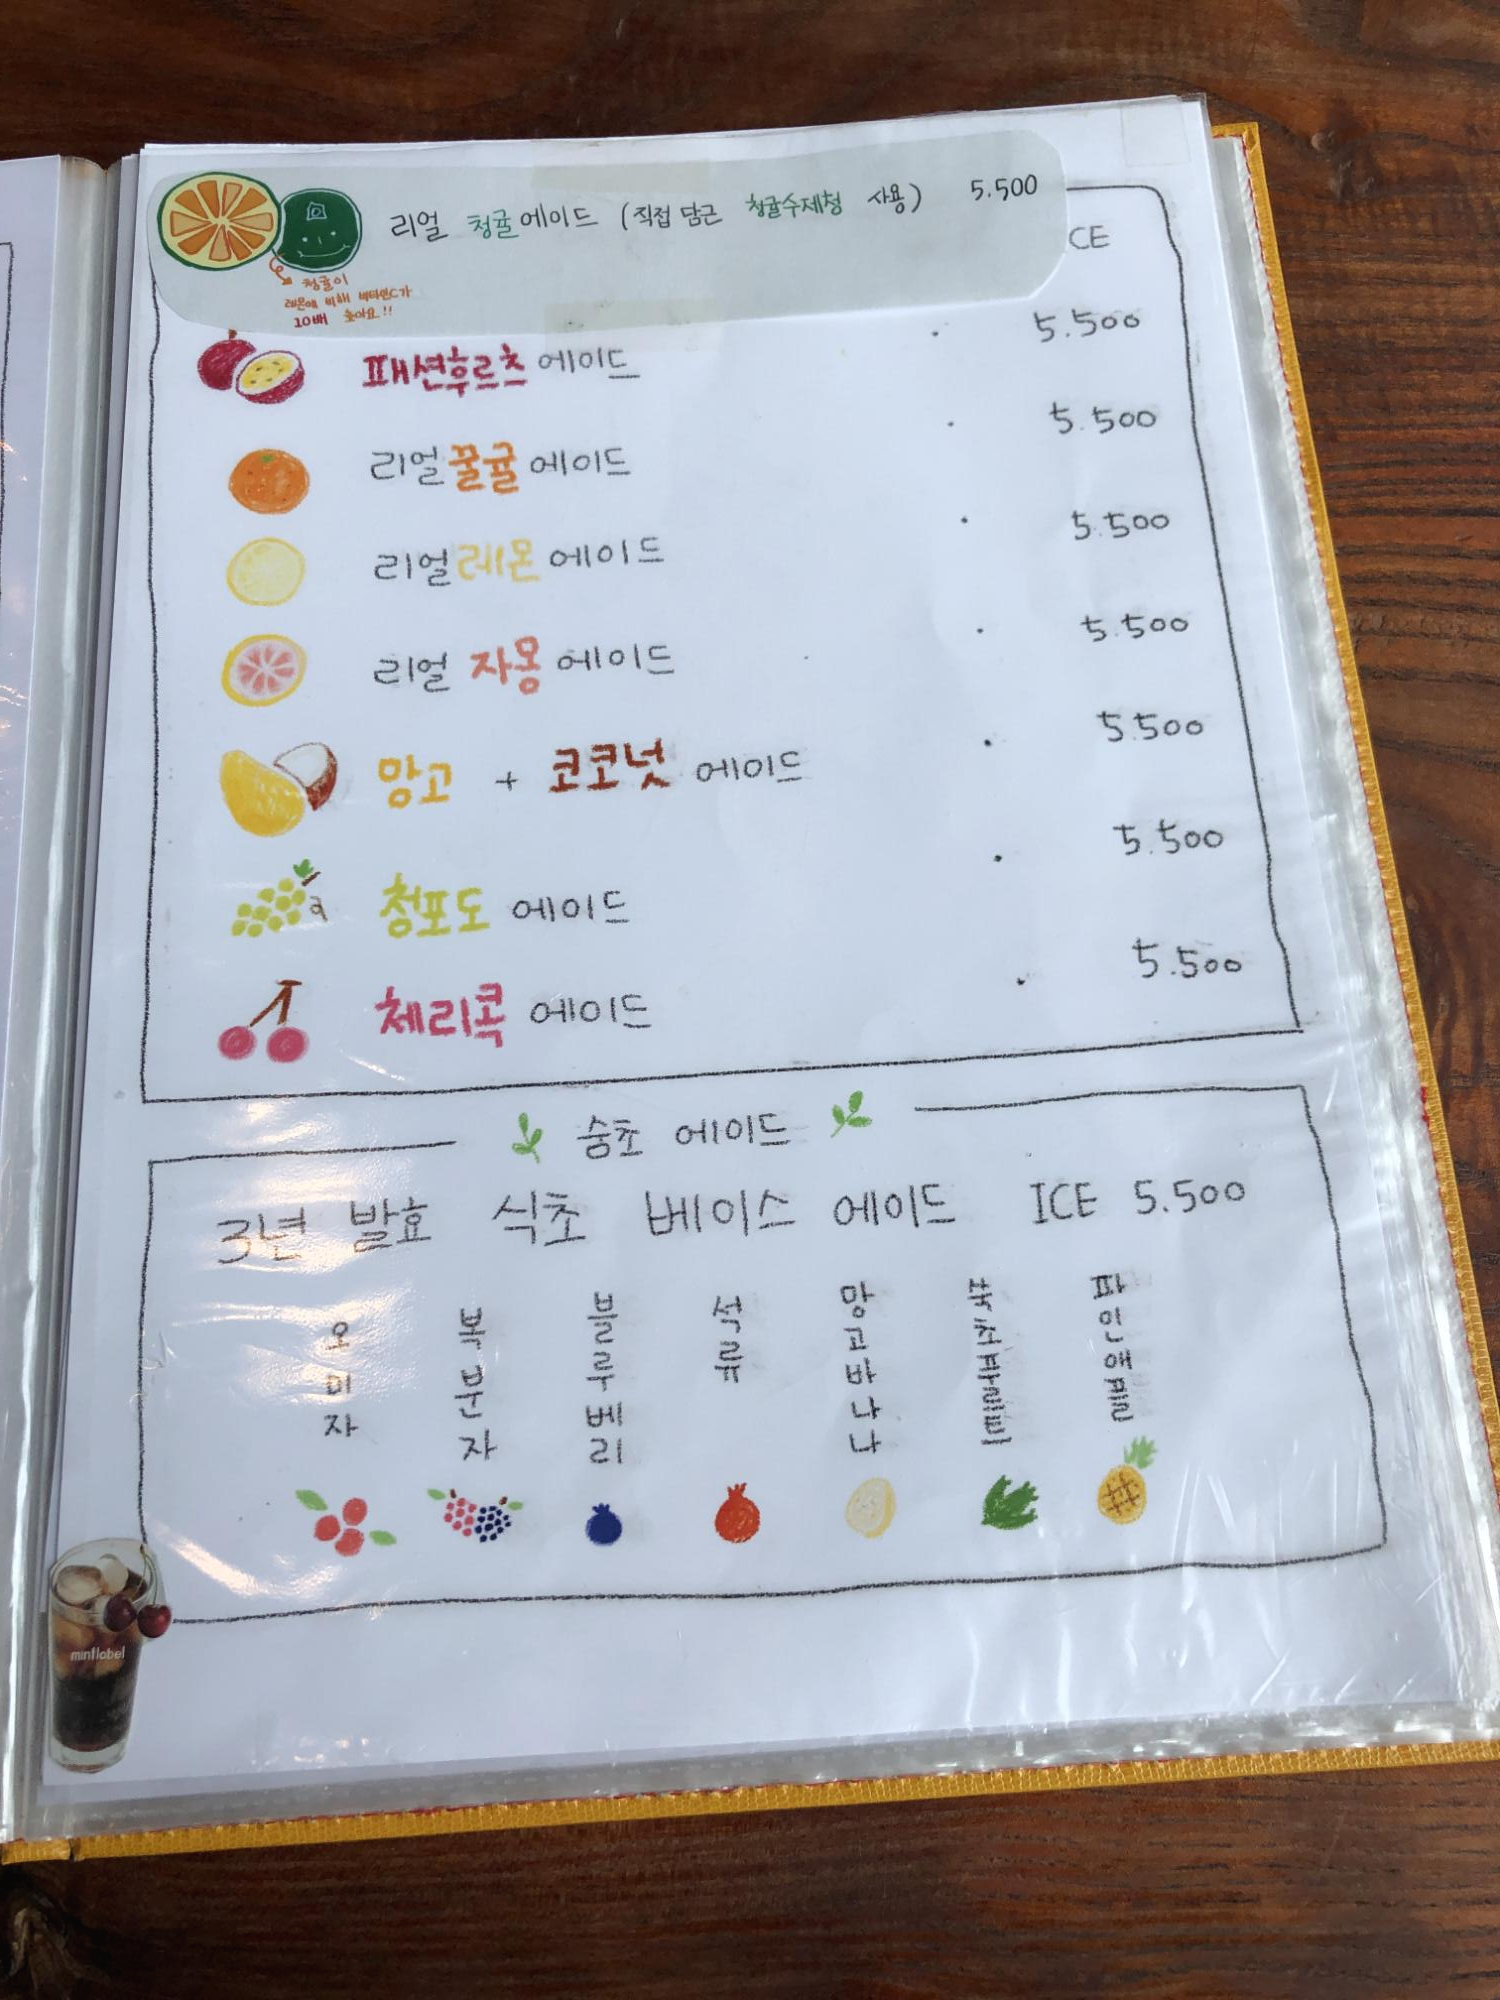 리얼 청귤에이드 (직접 담근 청귤수제청 사용) 5.500
청귤이
레몬에 비해 비타민C가
10배 높아요!!
CE
패션후르츠 에이드 5.500
리얼꿀귤에이드 5.500
리얼레몬에이드 5.500
리얼 자몽에이드 5.500
망고 + 코코넛 에이드 5.500
청포도 에이드 5.500
체리콕 에이드 5.500
숨초 에이드
3년 발효 식초 베이스 에이드 ICE 5.500
오미자
복분자
블루베리
석류
망고바나나
파인애플
mintlabel